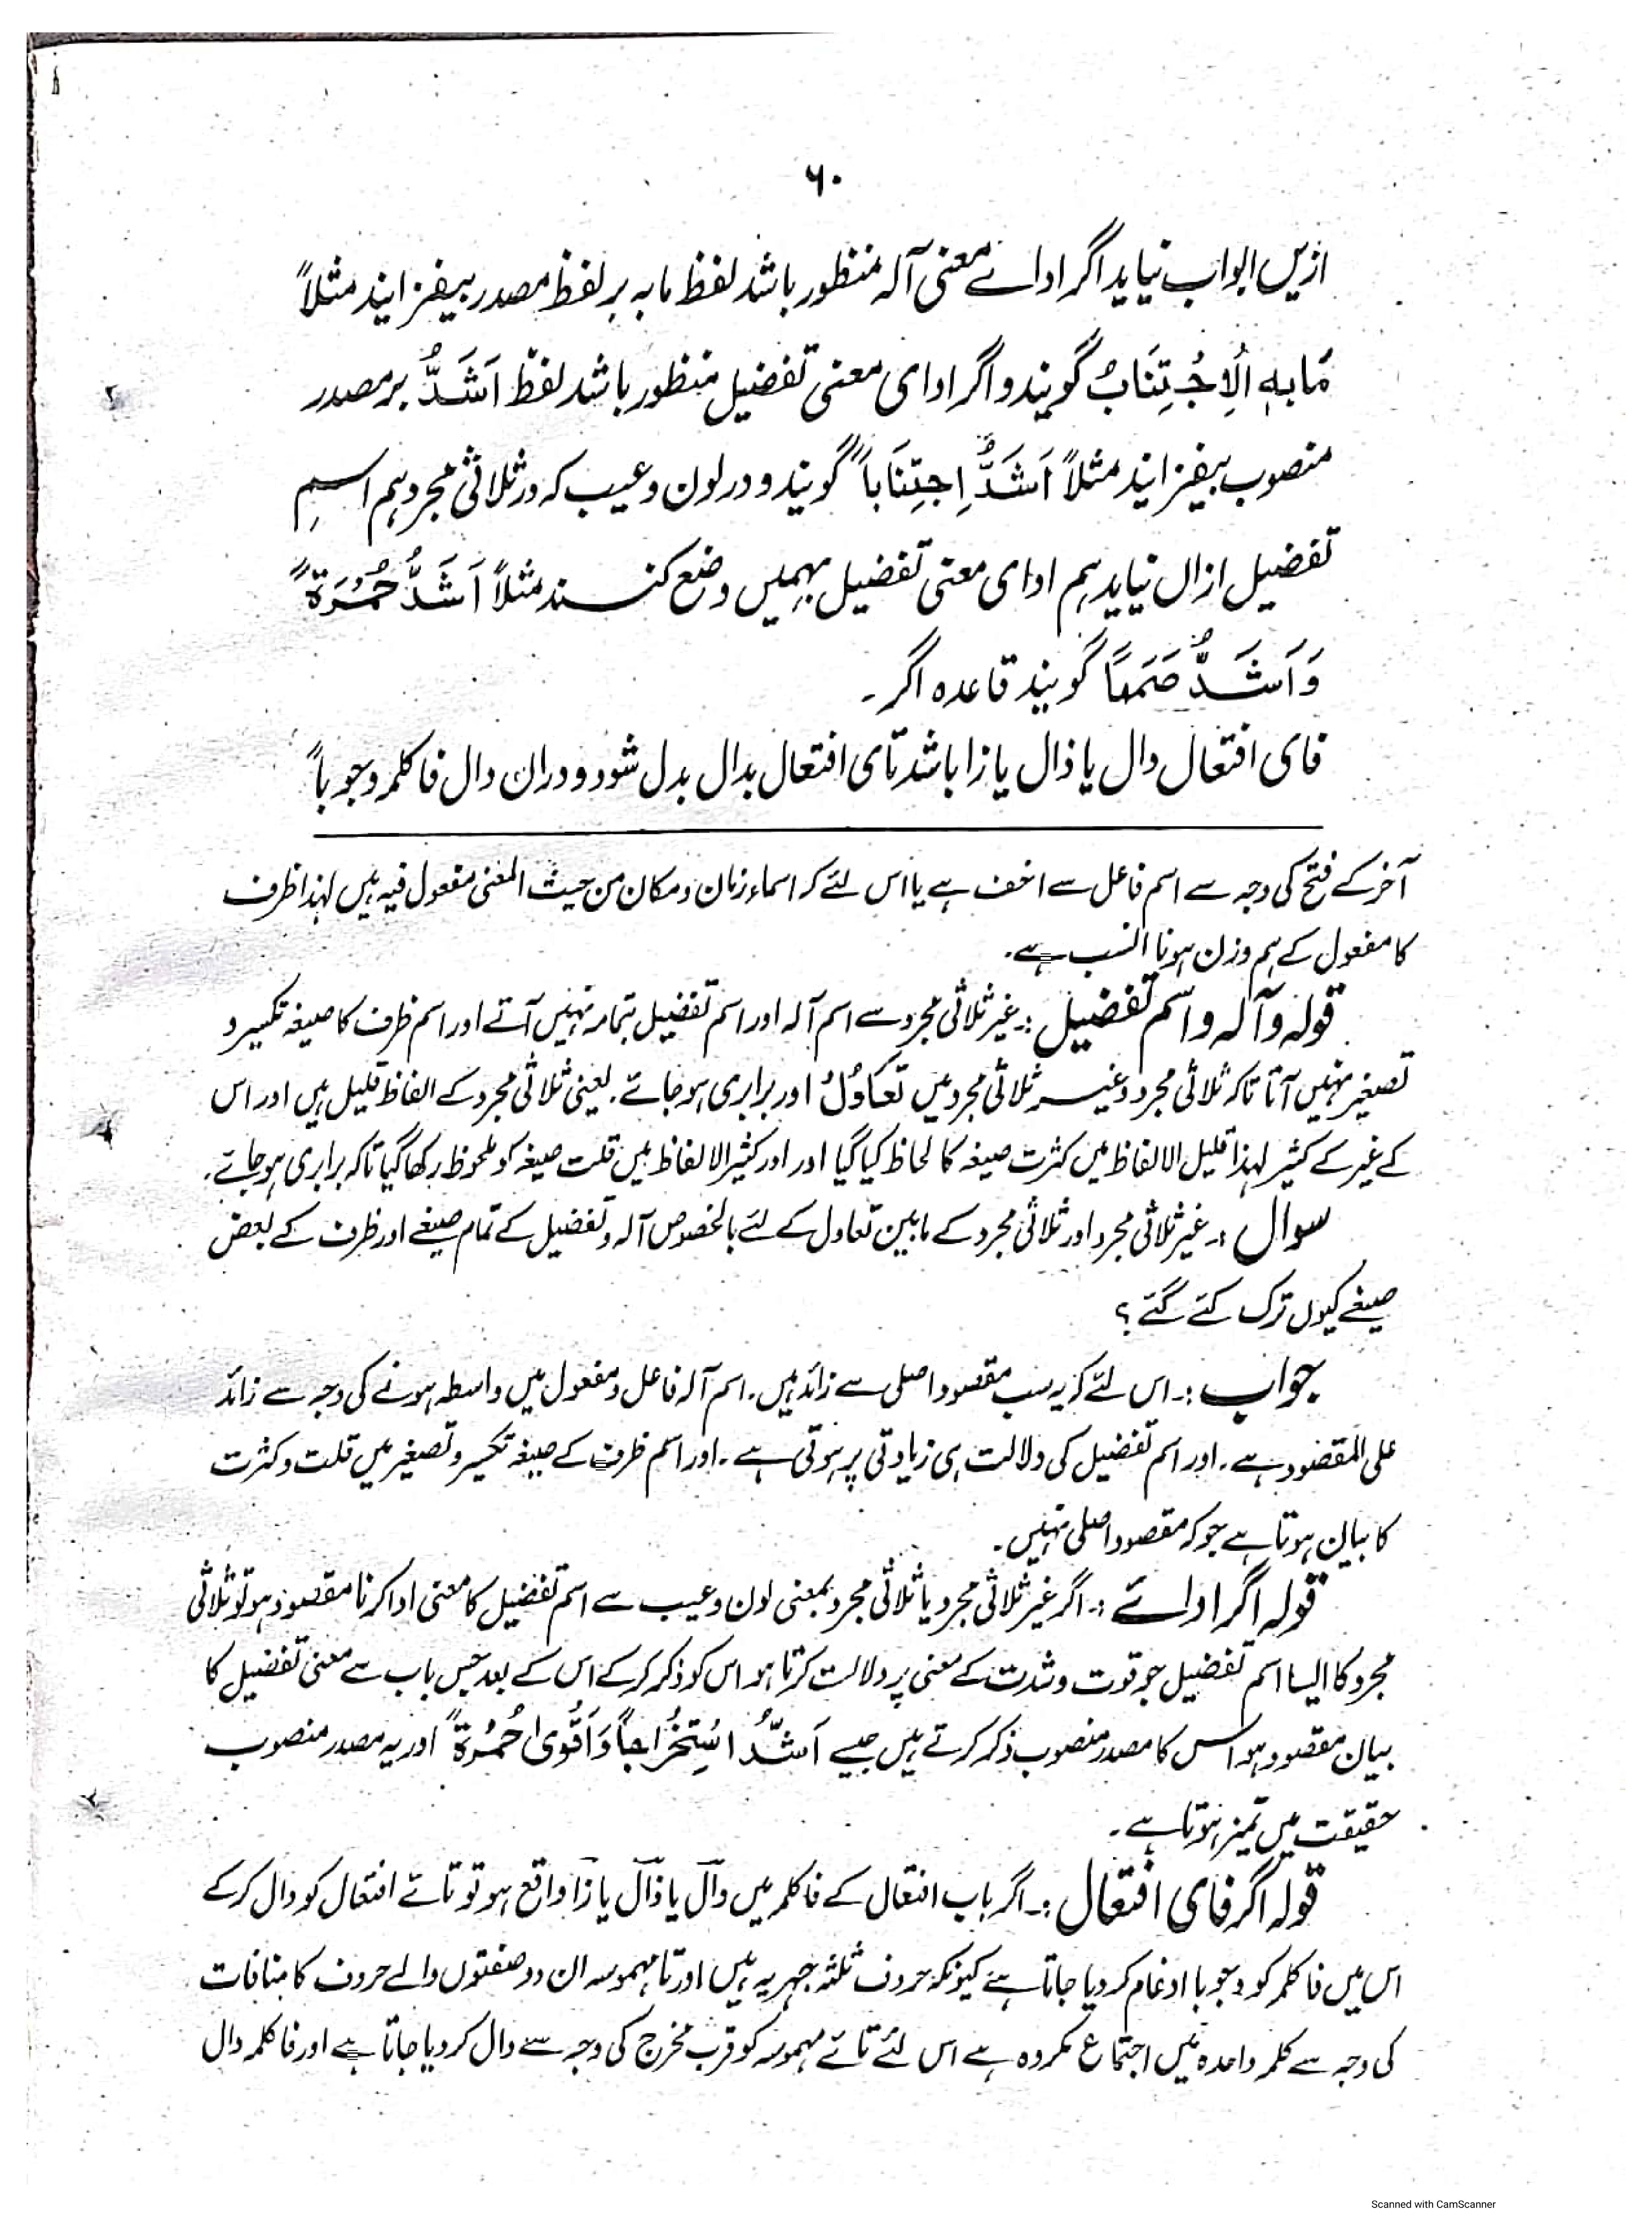 ۶۰
ازیں ابواب نیاید اگر ادائے معنی آلہ منظور باشد لفظ مابہ بر لفظ مصدر بیفزایند مثلاً
مَابِہِ الْاِجْتِنَابُ گویند و اگر ادای معنی تفضیل منظور باشد لفظ اَشَدُّ بر مصدر
منصوب بیفزایند مثلاً اَشَدُّ اِجْتِنَاباً گویند و در لون و عیب کہ در ثلاثی مجرد ہم اسمِ
تفضیل ازاں نیاید ہم ادای معنی تفضیل بہمیں وضع کنند مثلاً اَشَدُّ حُمْرَۃً
وَاَشَدُّ صَمَمًا گویند قاعدہ اگر۔
فای افتعال دال یا ذال یا زا باشد تای افتعال بدال بدل شود و دراں دال فاکلمہ وجوباً
آخر کے فتح کی وجہ سے اسم فاعل سے اخف ہے یا اس لئے کہ اسماء زمان و مکان من حیث المعنی مفعول فیہ ہیں لہذا ظرف
کا مفعول کے ہم وزن ہونا انسب ہے۔
قولہ و آلہ و اسم تفضیل :۔ غیر ثلاثی مجرد سے اسم آلہ اور اسم تفضیل بتمامہ نہیں آتے اور اسم ظرف کا صیغہ تکسیر و
تصغیر نہیں آتا تاکہ ثلاثی مجرد و غیر ثلاثی مجرد میں تَعَادُلْ اور برابری ہو جاتے۔ یعنی ثلاثی مجرد کے الفاظ قلیل ہیں اور اس
کے غیر کے کثیر لہذا قلیل الالفاظ میں کثرت صیغہ کا لحاظ کیا گیا اور اور کثیر الالفاظ میں قلت صیغہ کو ملحوظ رکھا گیا تاکہ برابری ہو جاتے۔
سوال :۔ غیر ثلاثی مجرد اور ثلاثی مجرد کے مابین تعادل کے لئے بالخصوص آلہ و تفضیل کے تمام صیغے اور ظرف کے بعض
صیغے کیوں ترک کئے گئے ؟
جواب :۔ اس لئے کہ یہ سب مقصود اصلی سے زائد ہیں۔ اسم آلہ فاعل و مفعول میں واسطہ ہونے کی وجہ سے زائد
علی المقصود ہے۔ اور اسم تفضیل کی دلالت ہی زیادتی پر ہوتی ہے۔ اور اسم ظرف کے صیغہ تکسیر و تصغیر میں قلت و کثرت
کا بیان ہوتا ہے جو کہ مقصود اصلی نہیں۔
قولہ اگر ادائے :۔ اگر غیر ثلاثی مجرد یا ثلاثی مجرد بمعنی لون و عیب سے اسم تفضیل کا معنی ادا کرنا مقصود ہو تو ثلاثی
مجرد کا ایسا اسم تفضیل جو قوت و شدت کے معنی پر دلالت کرتا ہو اس کو ذکر کر کے اس کے بعد جس باب سے معنی تفضیل کا
بیان مقصود ہو اس کا مصدر منصوب ذکر کرتے ہیں جیسے اَشَدُّ اسْتِخْرَاجاً وَاَقْوٰی حُمْرَۃً اور یہ مصدر منصوب
حقیقت میں تمیز ہوتا ہے۔
قولہ اگر فای افتعال :۔ اگر باب افتعال کے فاکلمہ میں دال یا ذال یا زا واقع ہو تو تائے افتعال کو دال کر کے
اس میں فاکلمہ کو وجوبا ادغام کر دیا جاتا ہے کیونکہ حروف ثلثہ جہریہ ہیں اور تا مہموسہ ان دو صفتوں والے حروف کا منافات
کی وجہ سے کلمہ واحدہ میں اجتماع مکروہ ہے اس لئے تائے مہموسہ کو قرب مخرج کی وجہ سے دال کر دیا جاتا ہے اور فاکلمہ دال
Scanned with CamScanner